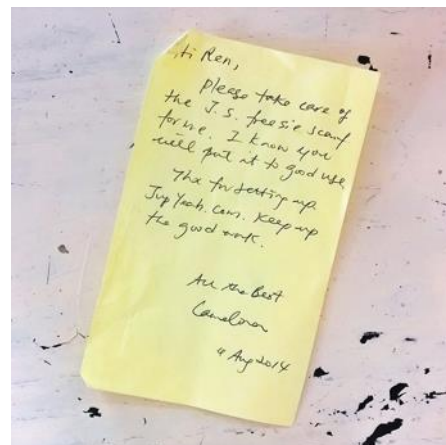 Hi Ren,
please take care of
the J.S. freesie scarf
for me. I know you
will put it to good use
Thx for setting up
JupYeah.com. Keep up
the good work.
All the Best
4 Aug 2014